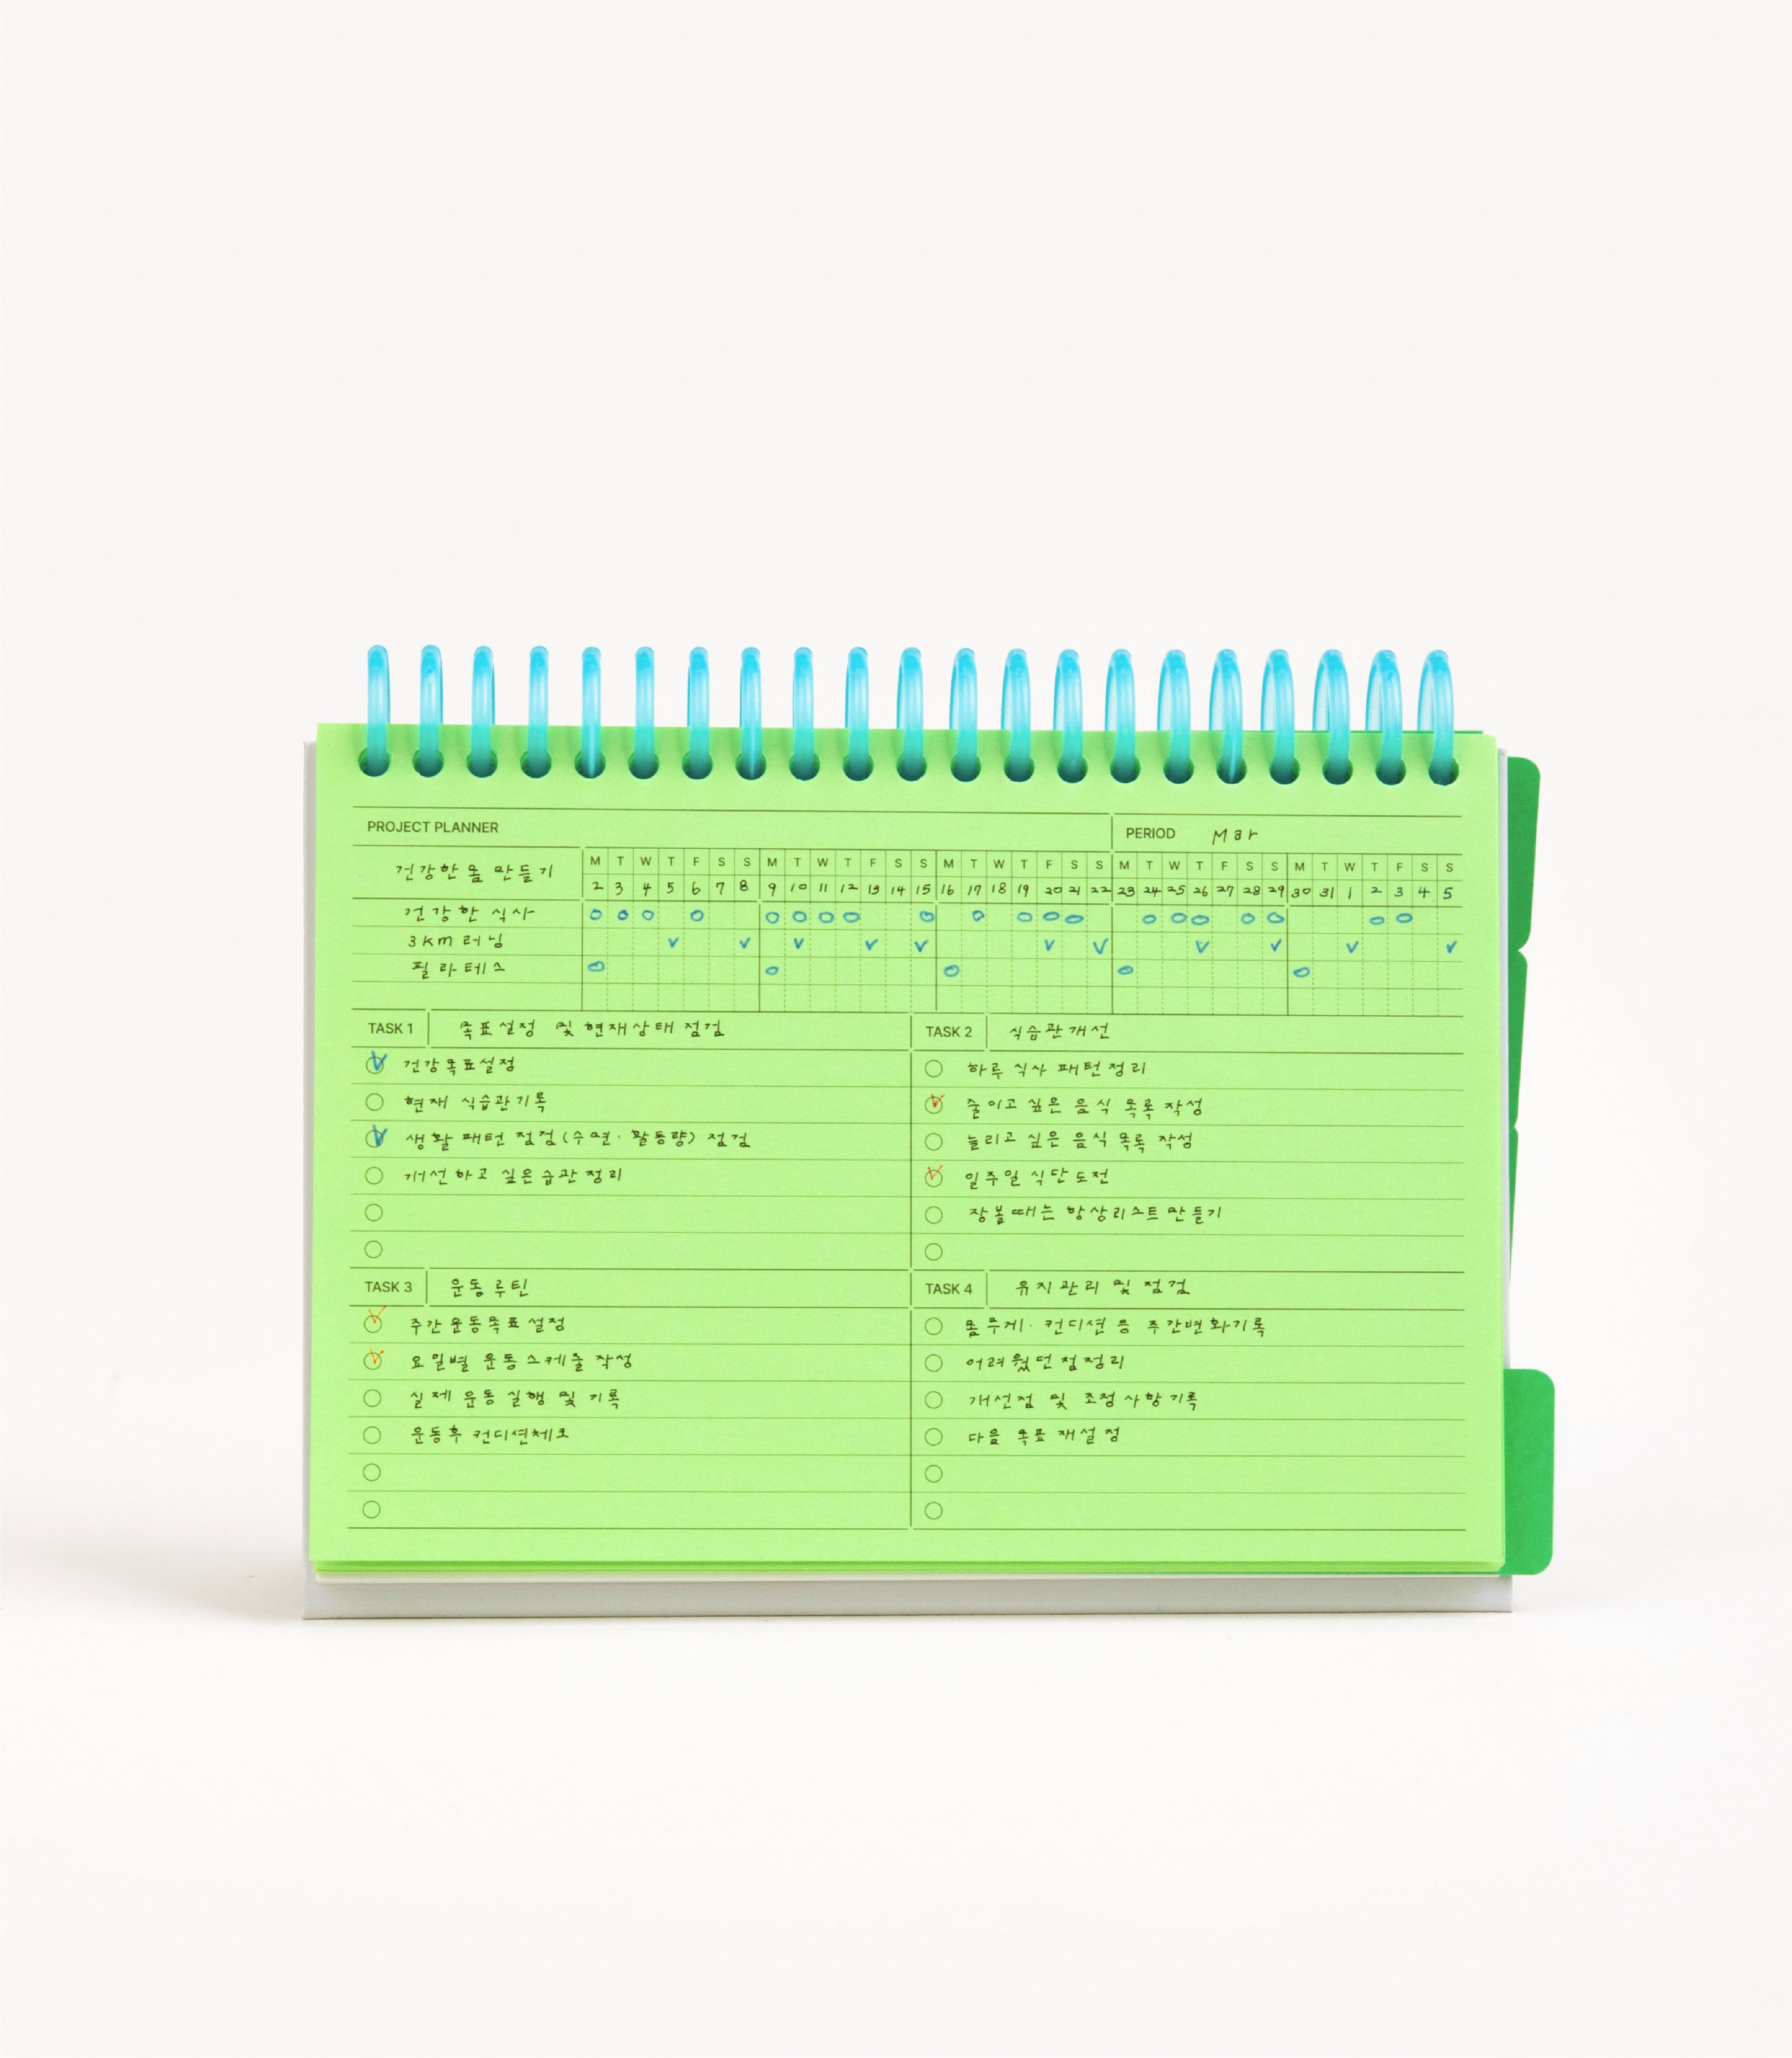 PROJECT PLANNER PERIOD Mar
건강한 몸 만들기 M T W T F S S M T W T F S S M T W T F S S M T W T F S S M T W T F S S
2 3 4 5 6 7 8 9 10 11 12 13 14 15 16 17 18 19 20 21 22 23 24 25 26 27 28 29 30 31 1 2 3 4 5
건강한 식사
3km 러닝
필라테스
TASK 1 목표설정 및 현재상태 점검
건강목표설정
현재 식습관기록
생활 패턴 점검(수면·활동량) 점검
개선하고 싶은습관정리
TASK 2 식습관개선
하루 식사 패턴정리
줄이고 싶은 음식 목록 작성
늘리고 싶은 음식 목록 작성
일주일 식단도전
장볼때는 항상리스트만들기
TASK 3 운동루틴
주간운동목표설정
요일별 운동스케줄 작성
실제 운동 실행 및 기록
운동후 컨디션체크
TASK 4 유지관리 및 점검
몸무게·컨디션 등 주간변화기록
어려웠던점정리
개선점 및 조정사항기록
다음 목표 재설정